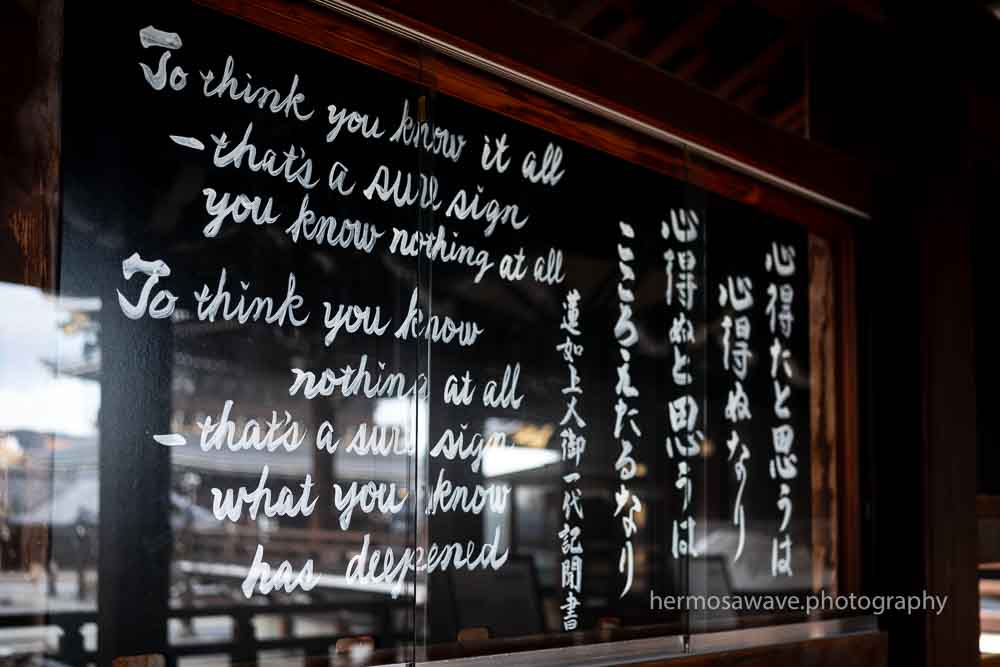 To think you know it all
–that's a sure sign
you know nothing at all
To think you know
nothing at all
–that's a sure sign
what you know
has deepened
心得たと思うは
心得ぬなり
心得ぬと思うは
こころえたるなり
蓮如上人御一代記聞書
hermosawave.photography